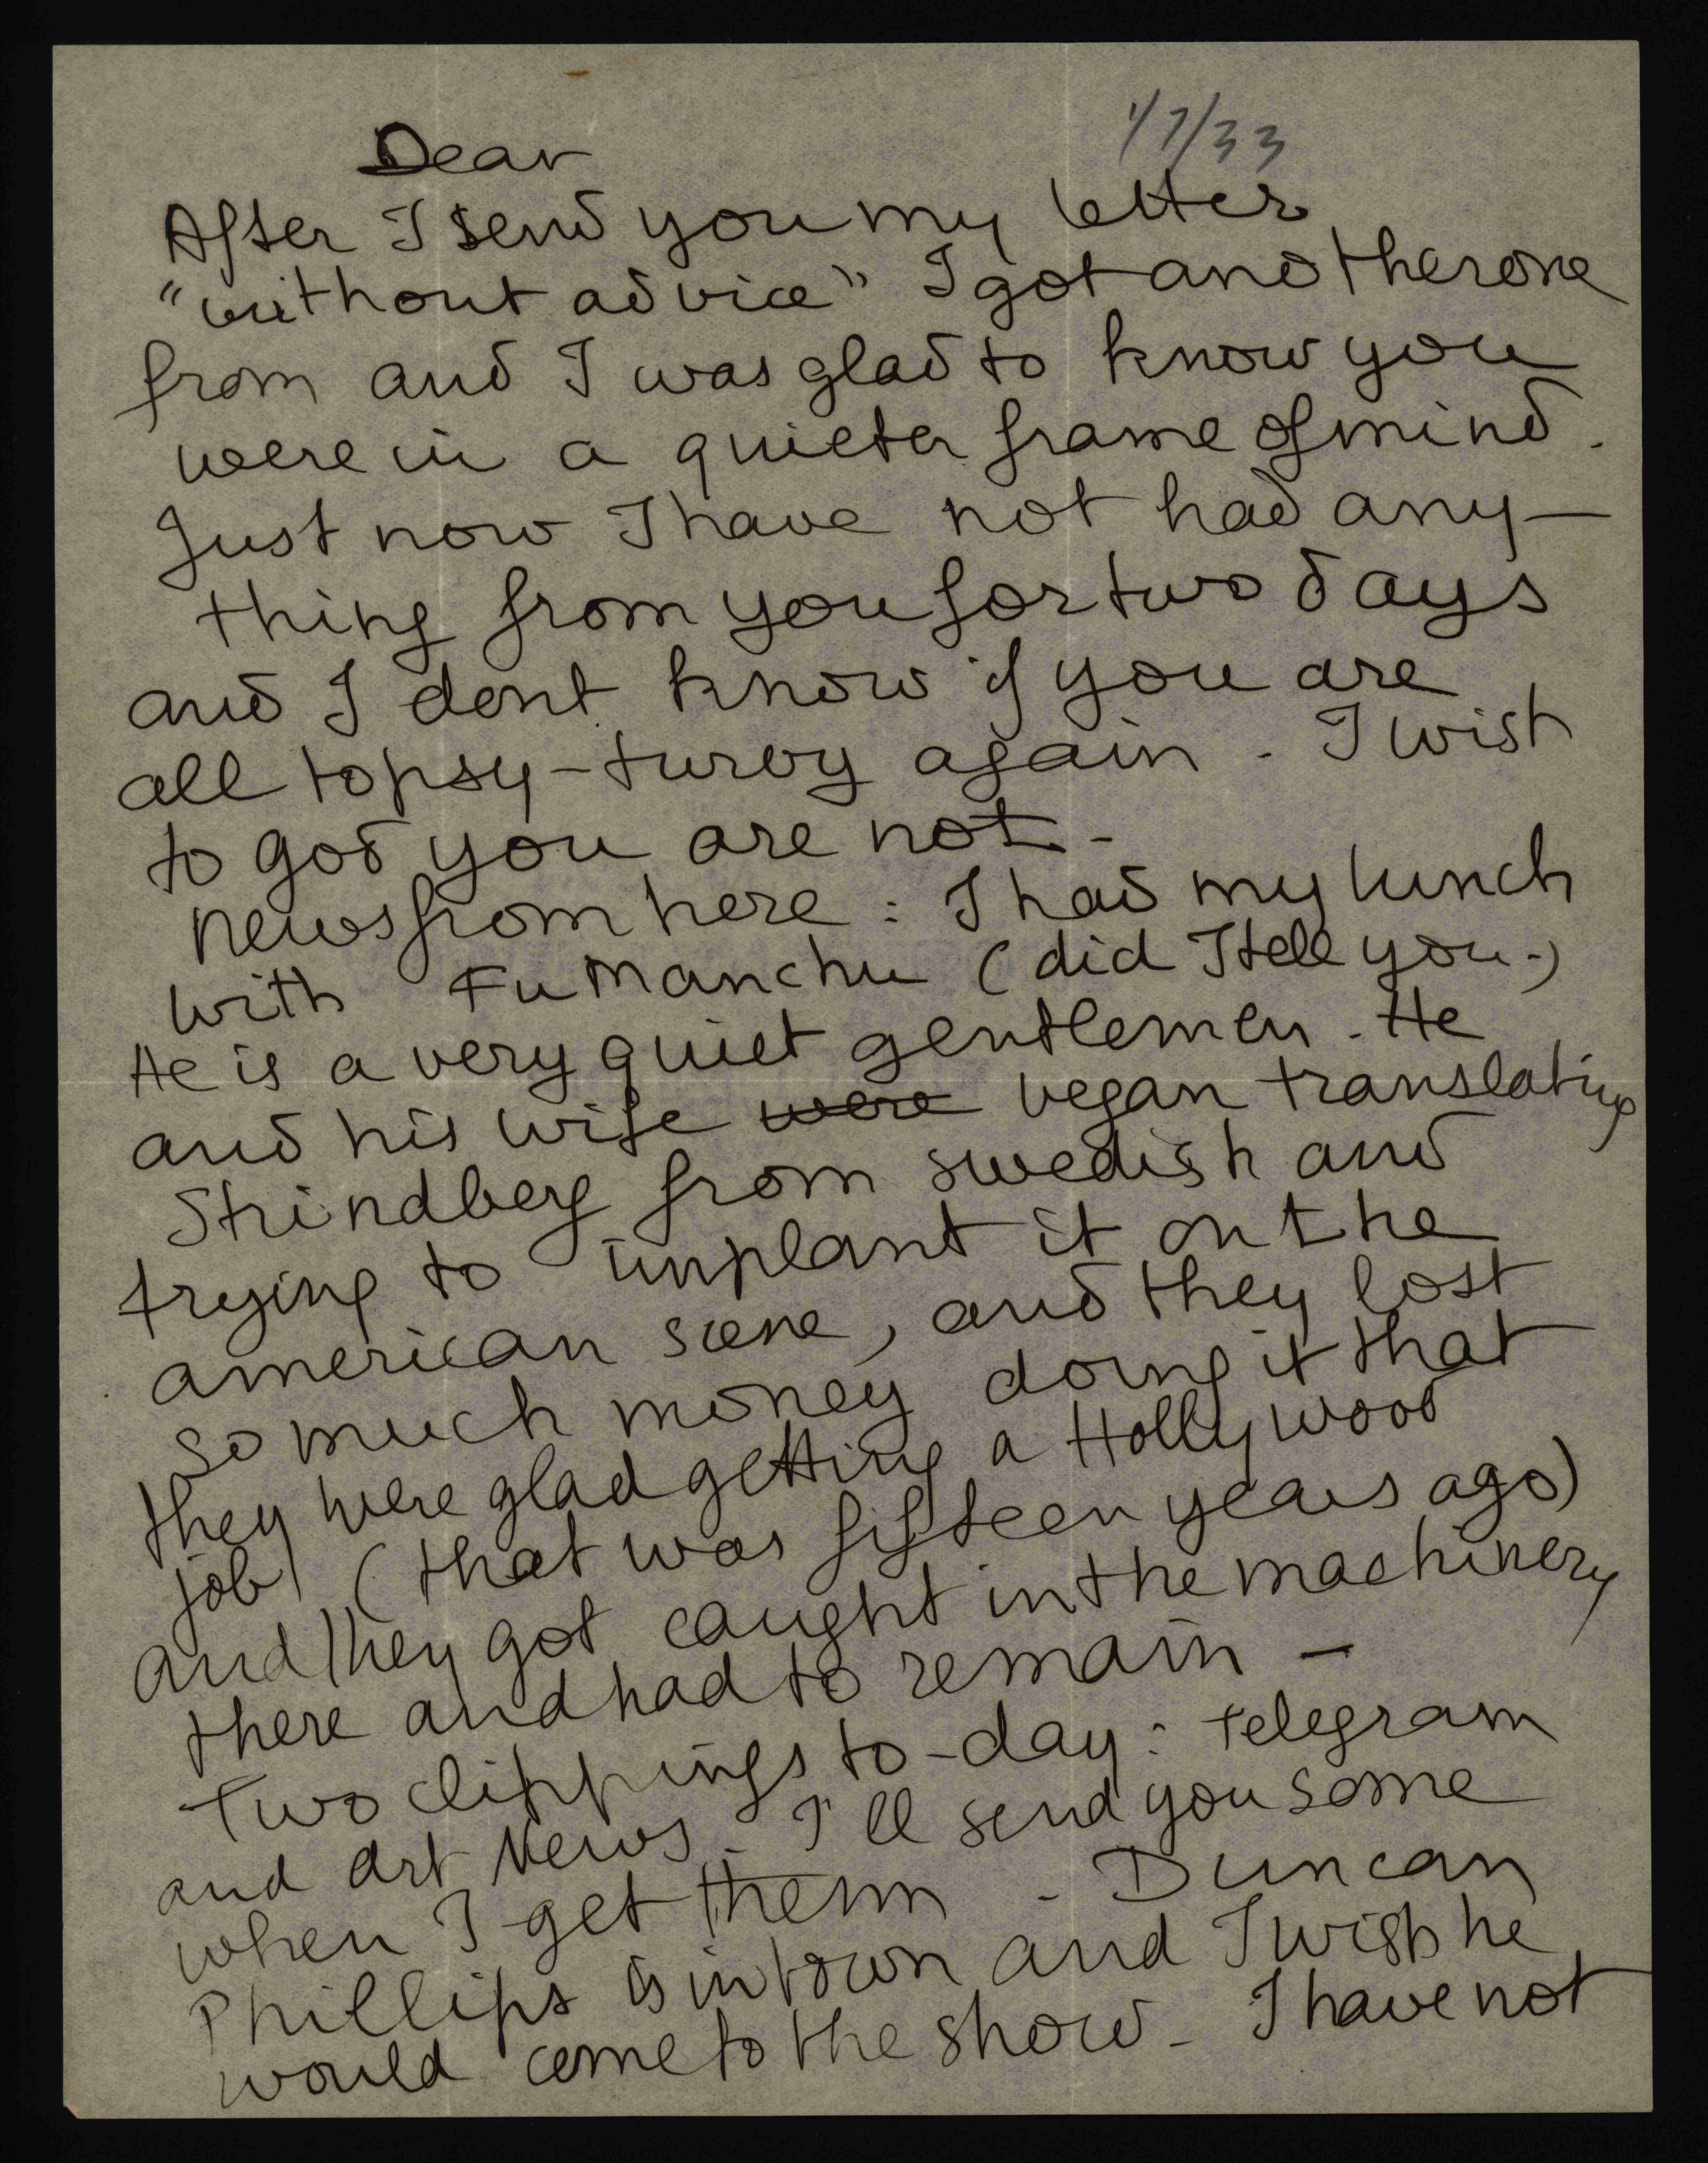 1/7/33
Dear
After I send you my letter
"without advice" I got anotherone
from and I was glad to know you
were in a quieter frame of mind.
Just now I have not had any-
thing from you for two days
and I dont know if you are
all topsy-turvy again - I wish
to god you are not -
News from here : I had my lunch
with Fu Manchu (did I tell you-)
He is a very quiet gentlemen. He
and his wife were vegan translating
Strindberg from swedish and
trying to implant it on the
american scene, and they lost
so much money doing it that
they were glad getting a Hollywood
job (that was fifteen years ago)
and they got caught in the machinery
there and had to remain -
Two clippings to-day: telegram
and Art News - I'll send you some
when I get them - Duncan
Phillips is in town and I wish he
would come to the show - I have not